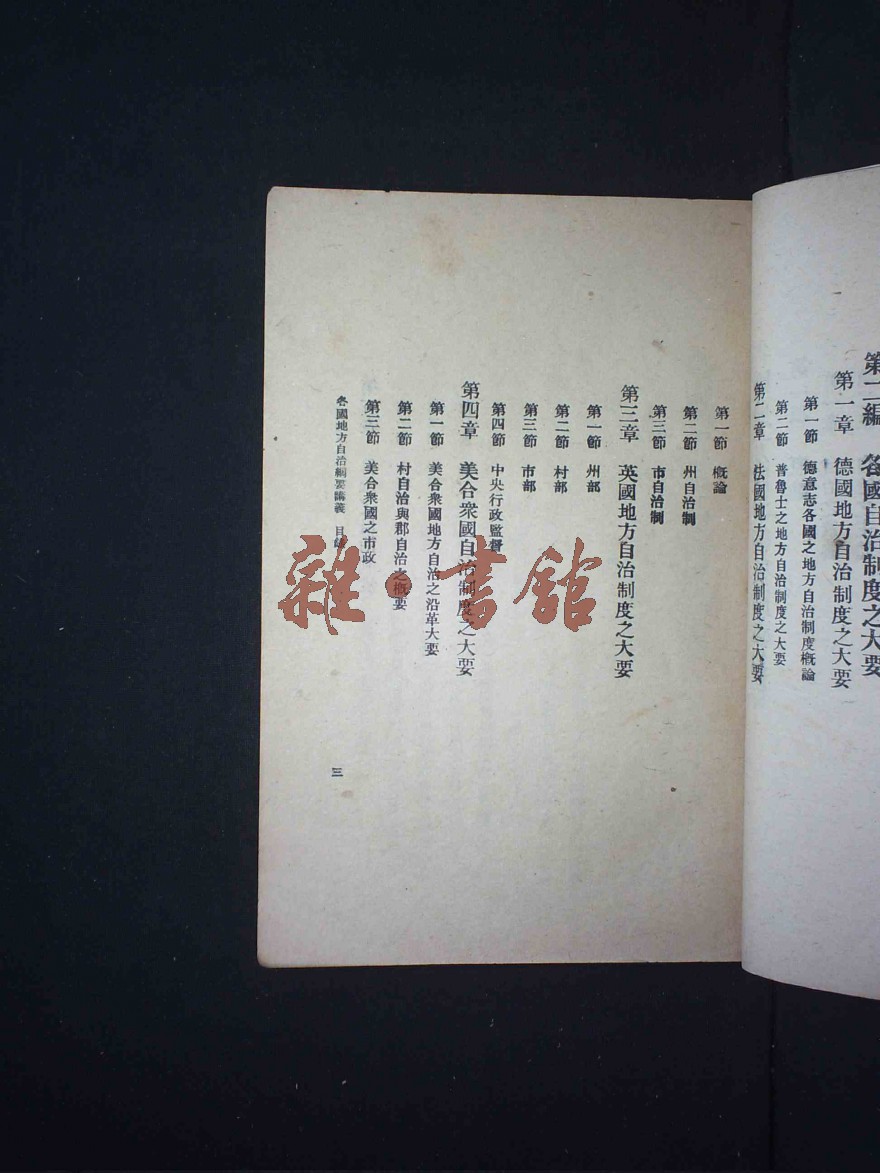 第二編　各國自治制度之大要
第一章　德國地方自治制度之大要
第一節　德意志各國之地方自治制度概論
第二節　普魯士之地方自治制度之大要
第二章　法國地方自治制度之大要
第一節　概論
第二節　州自治制
第三節　市自治制
第三章　英國地方自治制度之大要
第一節　州部
第二節　村部
第三節　市部
第四節　中央行政監督
第四章　美合衆國自治制度之大要
第一節　美合衆國地方自治之沿革大要
第二節　村自治與郡自治之概要
第三節　美合衆國之市政
各國地方自治綱要講義　目錄
三
雜·書館